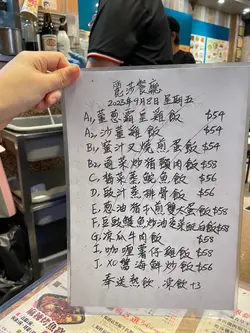 麗莎餐廳
2023年9月8日 星期五
A1, 薑蔥霸王雞飯 $54
A2, 沙薑雞飯 $54
B1, 蜜汁叉燒煎蛋飯 $54
B2, 通菜炒猪頸肉飯 $58
C, 梅菜蒸鯇魚飯 $56
D, 豉汁蒸排骨飯 $56
E, 葱油猪扒煎雙蛋飯 $58
F, 豆豉鯪魚炒油麦菜飯 $58
G, 凉瓜牛肉飯 $58
I, 咖喱薯仔雞飯 $58
J, XO醬海鮮炒飯 $56
奉送热飲, 凍飲+3